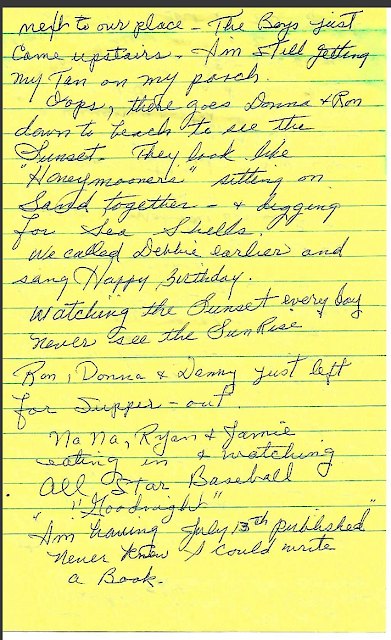 next to our place - The Boys just
Came upstairs. Am still getting
my Tan on my porch.
Oops, there goes Donna & Ron
down to beach to see the
Sunset. They look like
"Honeymooners" sitting on
Sand together - & digging
for Sea Shells.
We called Debbie earlier and
sang Happy Birthday.
Watching the Sunset every day
never see the SunRise
Ron, Donna & Danny just left
for Supper - out.
Na Na, Ryan & Jamie
eating in & watching
All Star Baseball
"Goodnight"
"Am having July 13th published"
Never knew I could write
a Book.